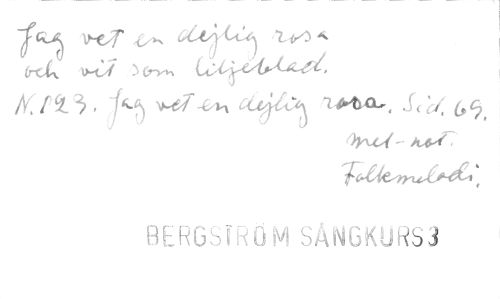 Jag vet en dejlig rosa
och vit som liljeblad.
N. 123. Jag vet en dejlig rosa. Sid. 69.
mel-not.
Folkmelodi.
BERGSTRÖM SÅNGKURS3